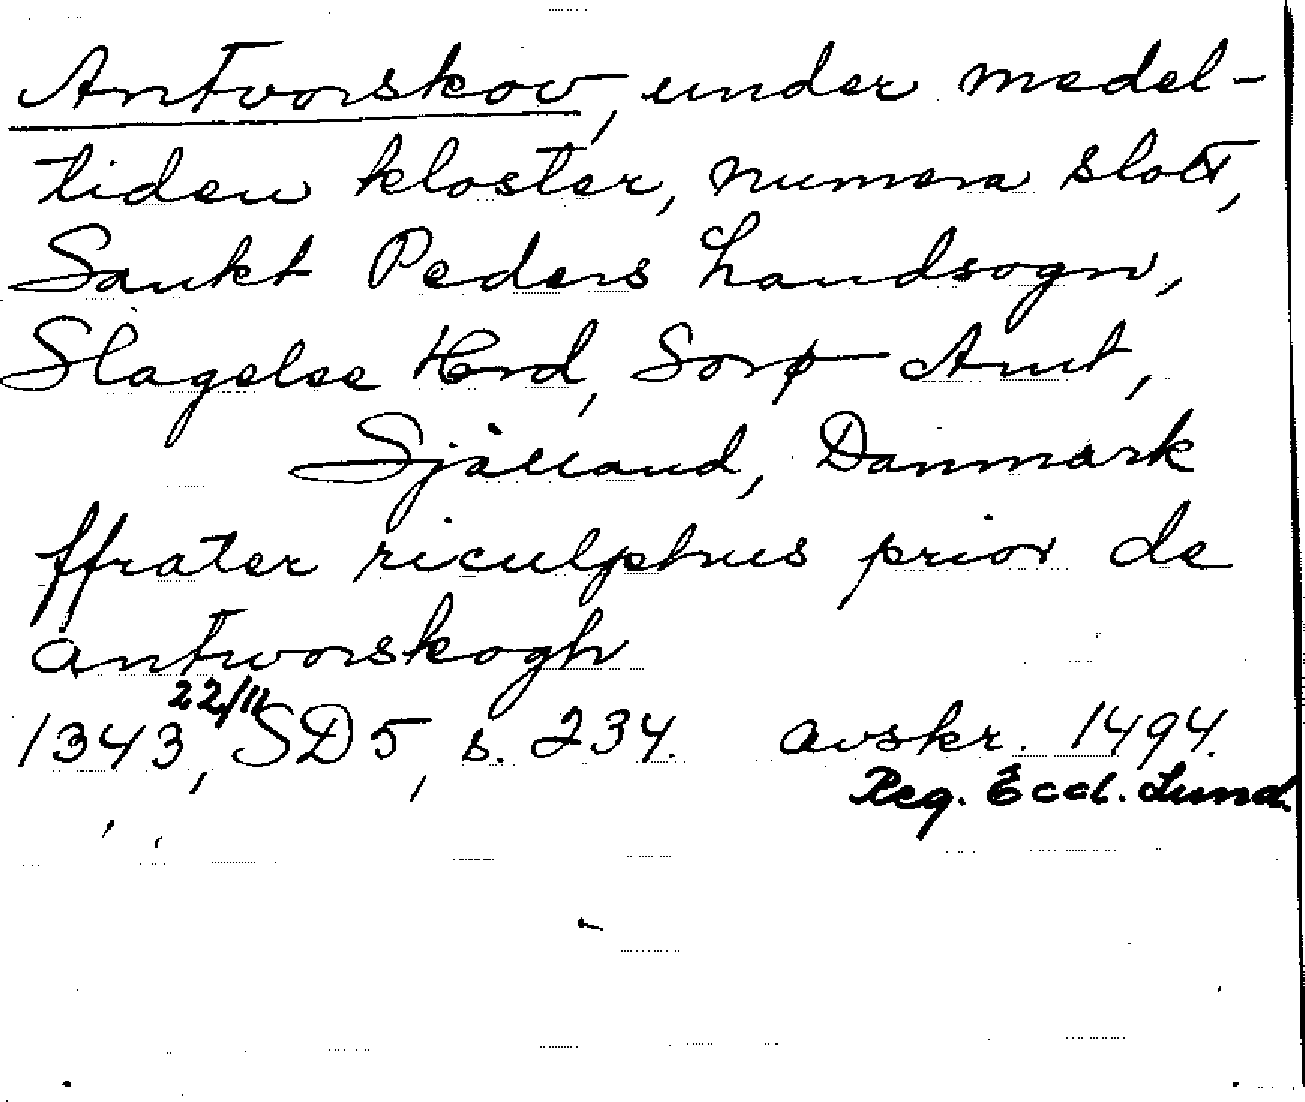 Antvorskov, under medel-
tiden kloster, numera slott,
Sankt Peders Landsogn,
Slagelse Hrd, Sorø Amt,
Själland, Danmark
ffrater riculphus prior de
antworskogh
1343 22/11, SD 5, s. 234. avskr. 1494.
Reg. Eccl. Lund.